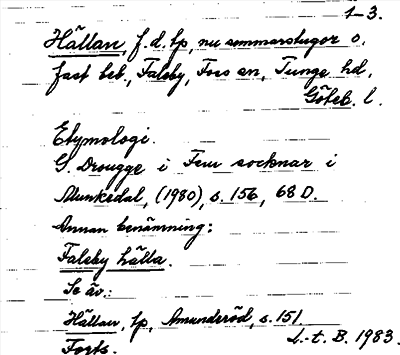 1-3.
Hällan, f.d. tp, nu sommarstugor o.
fast beb., Falsby, Foss sn, Tunge hd,
Göteb. l.
Etymologi.
G. Drougge i Fem socknar i
Munkedal, (1980), s. 156, 68 D.
Annan benämning:
Falsby hälla.
Se äv.:
Hällan, tp, Amundsröd, s. 151
Forts.
L.-t. B. 1983.